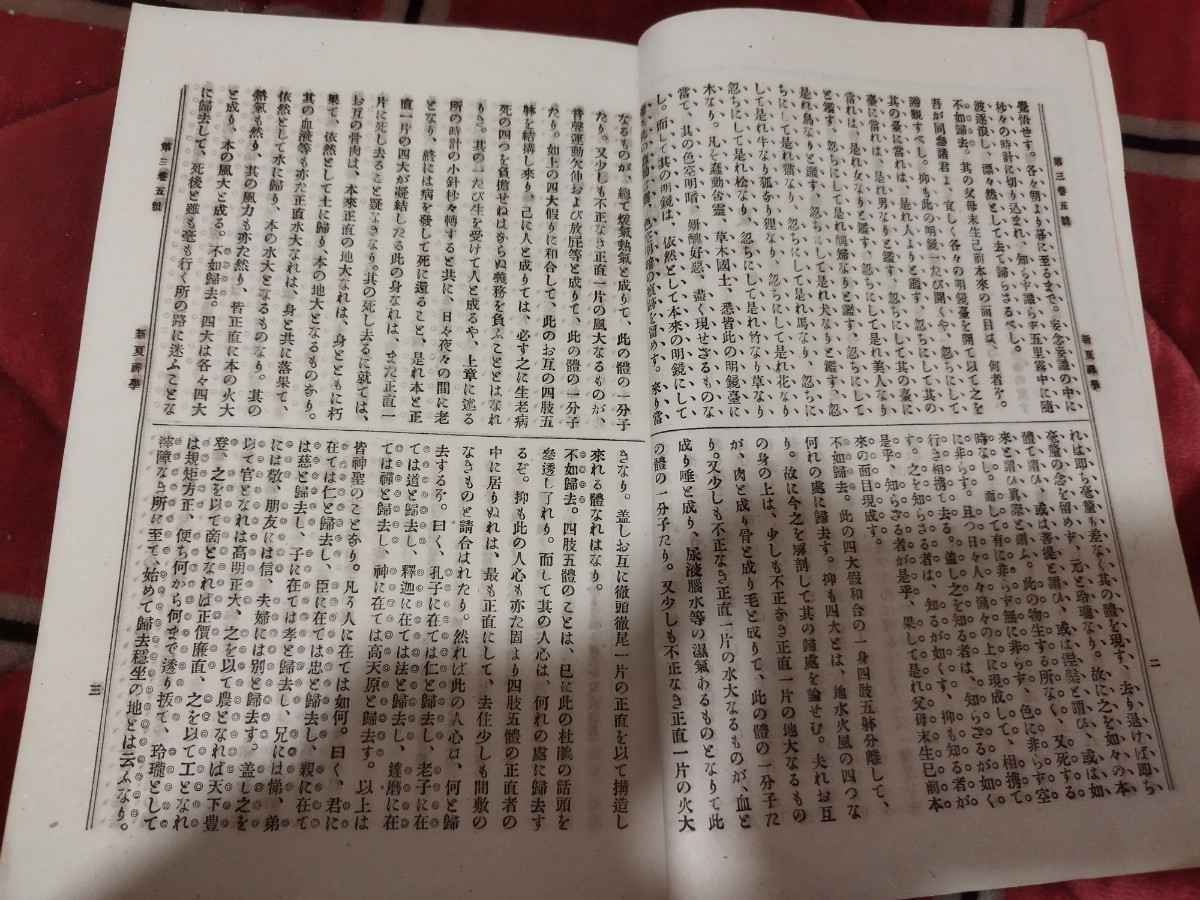 第三卷五號
新夏禪學
覺悟せす。各々朝より暮に至るまで。妄念妄識の中に
秒々の時計に切り込まれ、知らず識らず五里霧中に隨
波逐浪し、漂々然として去て歸らさるべし。
不如歸去。其の父母未生已前本來の面目は、何者を。
吾が同參諸君よ、宜しく各々の明鏡臺を開て以て之を
諦觀すべし。抑も此の明鏡一たび開くや、忽ちにして
其の臺に當れは、是れ人よりと鑑す、忽ちにして其の
臺に當れは、是れ男なりと鑑す、忽ちにして其の臺に
當れは、是れ女なりと鑑す、忽ちにして是れ美人なり
と鑑す、忽ちにして是れ醜婦なりと鑑す、忽ちにして
是れ鳥なりと鑑す、忽ちにして是れ犬なりと鑑す、忽
ちにして是れ猫なり、忽ちにして是れ馬なり、忽ちに
して是れ牛なり狐なり狸なり、忽ちにして是れ花なり
忽ちにして是れ松なり、忽ちにして是れ竹なり草なり
木なり。凡そ蠢動含靈、草木國土、悉皆此の明鏡臺に
當て、其の色空明暗、妍醜好惡、盡く現せざるものな
し。而して其の明鏡は、依然として本來の明鏡にして
色空明暗の痕跡を留めす。來り當
れは即ち毫釐も差なく其の體を現す、去り退けば即ち
毫釐の念を留めす、元と玲瓏なり。故に之を如々の本
體と謂ひ、或は菩提と謂ひ、或は涅槃と謂ひ、或は如
來と謂ひ眞際と謂ふ。此の物生する所なく、又死する
時なし。而して有に非らず無に非らず、色に非らず空
に非らず。且つ日々人々箇々の上に現成して、相携て
行き相携て去る。盖し之を知る者は、知らざるが如く
す。之を知らざる者は、知るが如くす、抑も知る者が
是乎、知らさる者が是乎、果して是れ父母未生已前本
來の面目現成す。
不如歸去。此の四大假和合の一身四肢五躰分離して、
何れの處に歸去す。抑も四大とは、地水火風の四つな
り。故に今之を解剖して其の歸處を論せむ。夫れお互
の身の上は、少しも不正なき正直一片の地大なるもの
が、肉と成り骨と成り毛と成りて、此の體の一分子た
り。又少しも不正なき正直一片の水大なるものが、血と
成り唾と成り、尿液腦水等の濕氣あるものとなりて此
の體の一分子たり。又少しも不正なき正直一片の火大
二
なるものが、總て煖氣熱氣と成りて、此の體の一分子
たり。又少しも不正なき正直一片の風大なるものが、
音聲運動欠伸および放屁等と成りて、此の體の一分子
たり。如上の四大假りに和合して、此のお互の四肢五
躰を結搆し來り、己に人と成りては、必す之に生老病
死の四つを負擔せねはならぬ義務を負ふこととはなれ
りき。其の一たび生を受けて人と成るや、上章に述る
所の時計の小針秒々轉すると共に、日々夜々の間に老
となり、終には病を發して死に還ること、是れ本と正
直一片の四大が凝結したる此の身なれは、また正直一
片に死し去ること疑なきなり。其の死し去るに就ては、
お互の骨肉は、本來正直の地大なれは、身とともに朽
果て、依然として土に歸り、本の地大となるものなり。
其の血液等も亦た正直水大なれは、身と共に落果て、
依然として水に歸り、本の水大となるものなり。其の
熱氣も然り、其の風力も亦た然り、皆正直に本の火大
と成り、本の風大と成る。不如歸去。四大は各々四大
に歸去して、死後と雖も毫も行く所の路に迷ふことな
きなり。盖しお互に徹頭徹尾一片の正直を以て搆造し
來れる體なれはなり。
不如歸去。四肢五體のことは、已に此の杜鵑の話頭を
參透し了れり。而して其の人心は、何れの處に歸去す
るぞ。抑も此の人心も亦た固より四肢五體の正直者の
中に居りぬれは、最も正直にして、去住少しも間斁の
なきものと請合はれたり。然れば此の人心は、何と歸
去するぞ。曰く、孔子に在ては仁と歸去し、老子に在
ては道と歸去し、釋迦に在ては法と歸去し、達磨に在
ては禪と歸去し、神に在ては高天原と歸去す。以上は
皆神聖のことなり。凡そ人に在ては如何。曰く、君に
在ては仁と歸去し、臣に在ては忠と歸去し、親に在て
は慈と歸去し、子に在ては孝と歸去し、兄には悌、弟
には敬、朋友には信、夫婦には別と歸去す。盖し之を
以て官となれは高明正大、之を以て農となれば天下豊
登、之を以て商となれば正價廉直、之を以て工となれ
は規矩方正、便ち何から何まで透り扳て、玲瓏として
滓障なき所に至て、始めて歸去穩坐の地とは云ふなり。
第三卷五號
新夏禪學
三